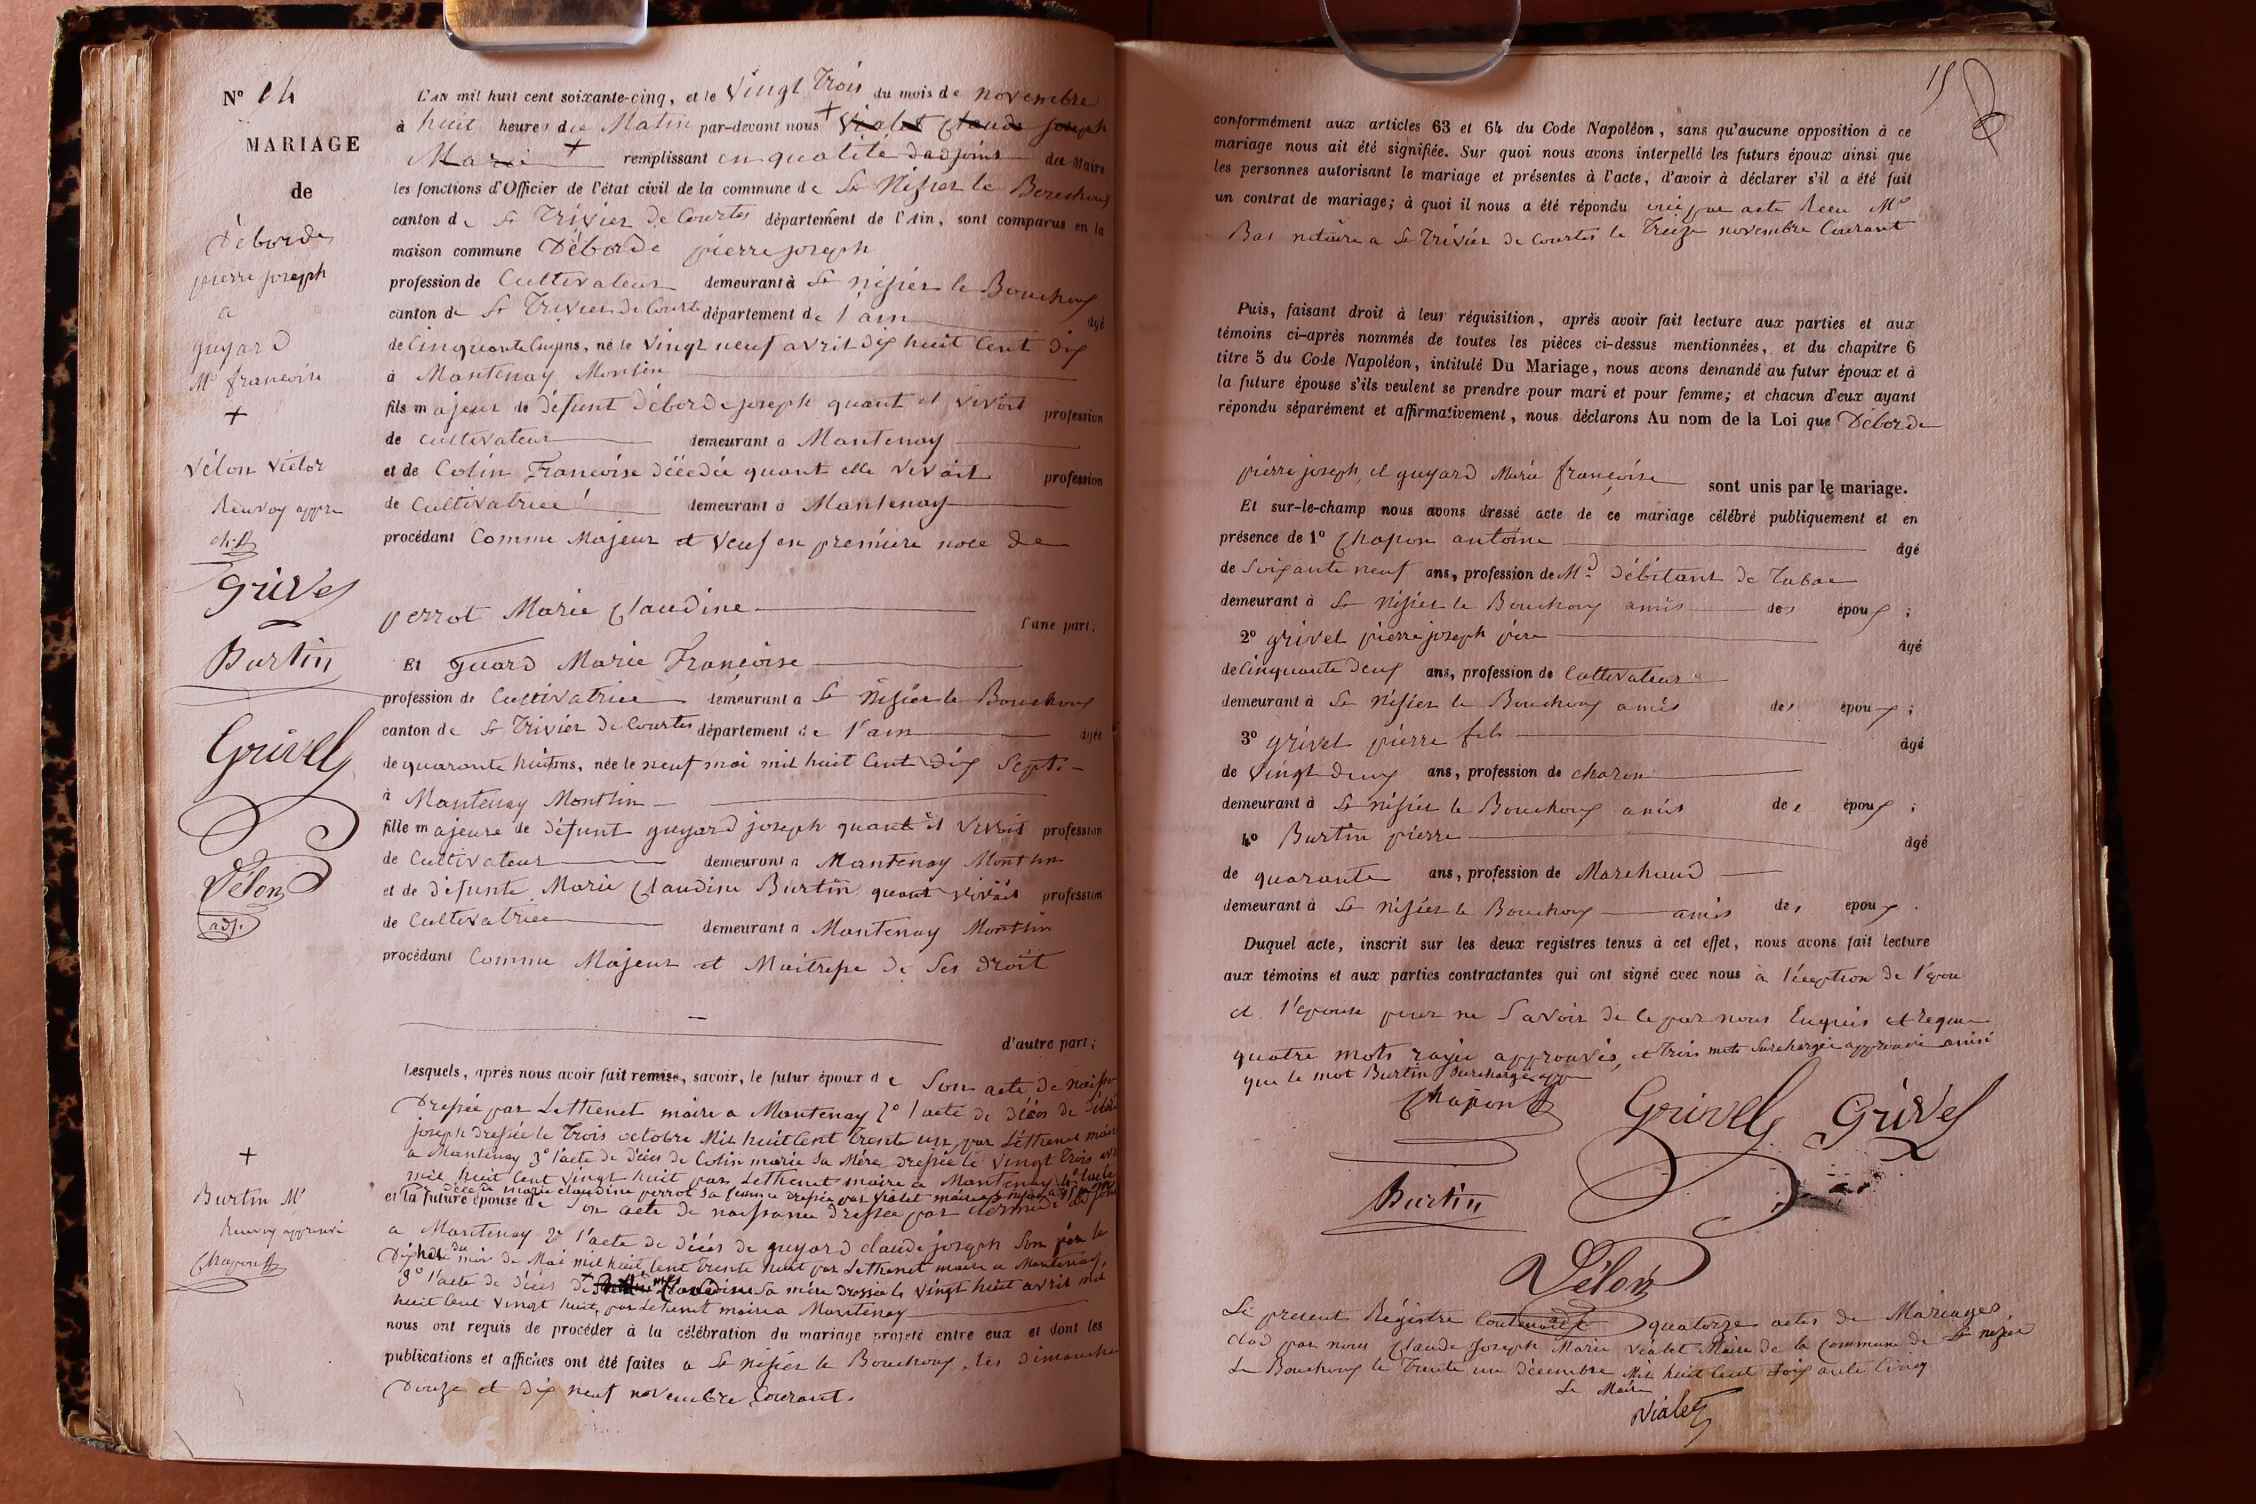 N° 14
MARIAGE
de
Déborde
pierre joseph
a
guyard
Mie francoise
+
Vélon Victor
Renvoy appro
ch.
Grivel
Burtin
Grivel
Vélon
adj.
+
Burtin Mie
Renvoy approuvé
Chapon
L'AN mil huit cent soixante-cinq, et le Vingt Trois du mois de novembre
à huit heures du Matin par-devant nous + Vialet Claude Joseph
Marie + remplissant en qualité d'adjoint du Maire
les fonctions d'Officier de l'état civil de la commune de St Nisier le Bouchoux
canton de St Trivier de Courtes département de l'Ain, sont comparus en la
maison commune Déborde pierre joseph
profession de Cultivateur demeurant à St nisier le Bouchoux
canton de St Trivier de Courte département de l'ain âgé
de Cinquante Cinq ans, né le Vingt neuf avril dix huit Cent dix
à Mantenay Montin
fils majeur de défunt Déborde joseph quant il vivoit profession
de cultivateur demeurant à Mantenay
et de Colin Francoise décédée quant elle vivait profession
de Cultivatrice demeurant à Mantenay
procédant Comme Majeur et Veuf en premiere noce de
perrot Marie Claudine
d'une part;
Et Guard Marie Françoise
profession de Cultivatrice demeurant à St Nisier le Bouchoux
canton de St Trivier de Courtes département de l'ain âgée
de quarante huit ans, née le neuf mai mil huit Cent dix Sept
à Mantenay Montlin
fille majeure de défunt guyard joseph quant il vivoit profession
de Cultivateur demeurant à Mantenay Montlin
et de défunte Marie Claudine Burtin quant vivait profession
de Cultivatrice demeurant à Mantenay Montlin
procédant Comme Majeur et Maitresse de Ses droit
d'autre part;
Lesquels, après nous avoir fait remise, savoir, le futur époux de Son acte de naissan
Dressée par Lethenet maire a Mantenay 2° l'acte de décés de Débord
joseph dressée le Trois octobre Mil huit Cent Trente un par Léthenet mair
a Mantenay 3° l'acte de décés de Colin marie Sa Mére dressée le Vingt Trois
mil huit Cent Vingt huit par Lethenet maire a Mantenay 4° l'acte
de décé de marie claudine perrot Sa femme dressée par Vialet maire
et la future épouse de Son acte de naissance dressée par
a Mantenay 2° l'acte de décés de guyard claude joseph Son pére le
Dix huit du mois de Mai mil huit Cent Trente huit par Lethenet maire a Mantenay,
3° l'acte de décés de + Claudine Sa mére dressée le Vingt huit avril mil
huit Cent Vingt huit, par Lethenet maire a Mantenay
nous ont requis de procéder à la célébration du mariage projeté entre eux et dont les
publications et affiches ont été faites a St nisier le Bouchoux, les dimanche
Douze et dix neuf novembre Courant.
15
conformément aux articles 63 et 64 du Code Napoléon, sans qu'aucune opposition à ce
mariage nous ait été signifiée. Sur quoi nous avons interpellé les futurs époux ainsi que
les personnes autorisant le mariage et présentes à l'acte, d'avoir à déclarer s'il a été fait
un contrat de mariage; à quoi il nous a été répondu oui par acte Recu Me
Bas notaire a St Trivier de Courtes le Treize novembre Courant
Puis, faisant droit à leur réquisition, après avoir fait lecture aux parties et aux
témoins ci-après nommés de toutes les pièces ci-dessus mentionnées, et du chapitre 6
titre 5 du Code Napoléon, intitulé Du Mariage, nous avons demandé au futur époux et à
la future épouse s'ils veulent se prendre pour mari et pour femme; et chacun d'eux ayant
répondu séparément et affirmativement, nous déclarons Au nom de la Loi que Déborde
pierre joseph, et guyard Marie françoise sont unis par le mariage.
Et sur-le-champ nous avons dressé acte de ce mariage célébré publiquement et en
présence de 1° Chapon antoine âgé
de Soixante neuf ans, profession de Md Débitant de Tabac
demeurant à St Nisier le Bouchoux amis des époux;
2° grivel pierre joseph pére âgé
de Cinquante deux ans, profession de Cultivateur
demeurant à St Nisier le Bouchoux amis des époux;
3° grivel pierre fils âgé
de Vingt deux ans, profession de charon
demeurant à St nisier le Bouchoux amis des époux;
4° Burtin pierre âgé
de quarante ans, profession de Marchand
demeurant à St nisier le Bouchoux amis des époux.
Duquel acte, inscrit sur les deux registres tenus à cet effet, nous avons fait lecture
aux témoins et aux parties contractantes qui ont signé avec nous à l'éception de l'épou
et l'épouse pour ne Savoir de ce par nous Enquis et requi
quatre mots rayée approuvés, et trois mots Surchargée approuvé ainsi
que le mot Burtin Surchargé app
Chapon
Grivel Grivel
Burtin
Vélon
Le present Régistre Contenant quatorze actes de Mariages,
clos par nous Claude Joseph Marie Vialet Maire de la Commune de St nizier
Le Bouchoux le Trente un décembre Mil huit Cent Soixante Cinq
Le Maire
Vialet